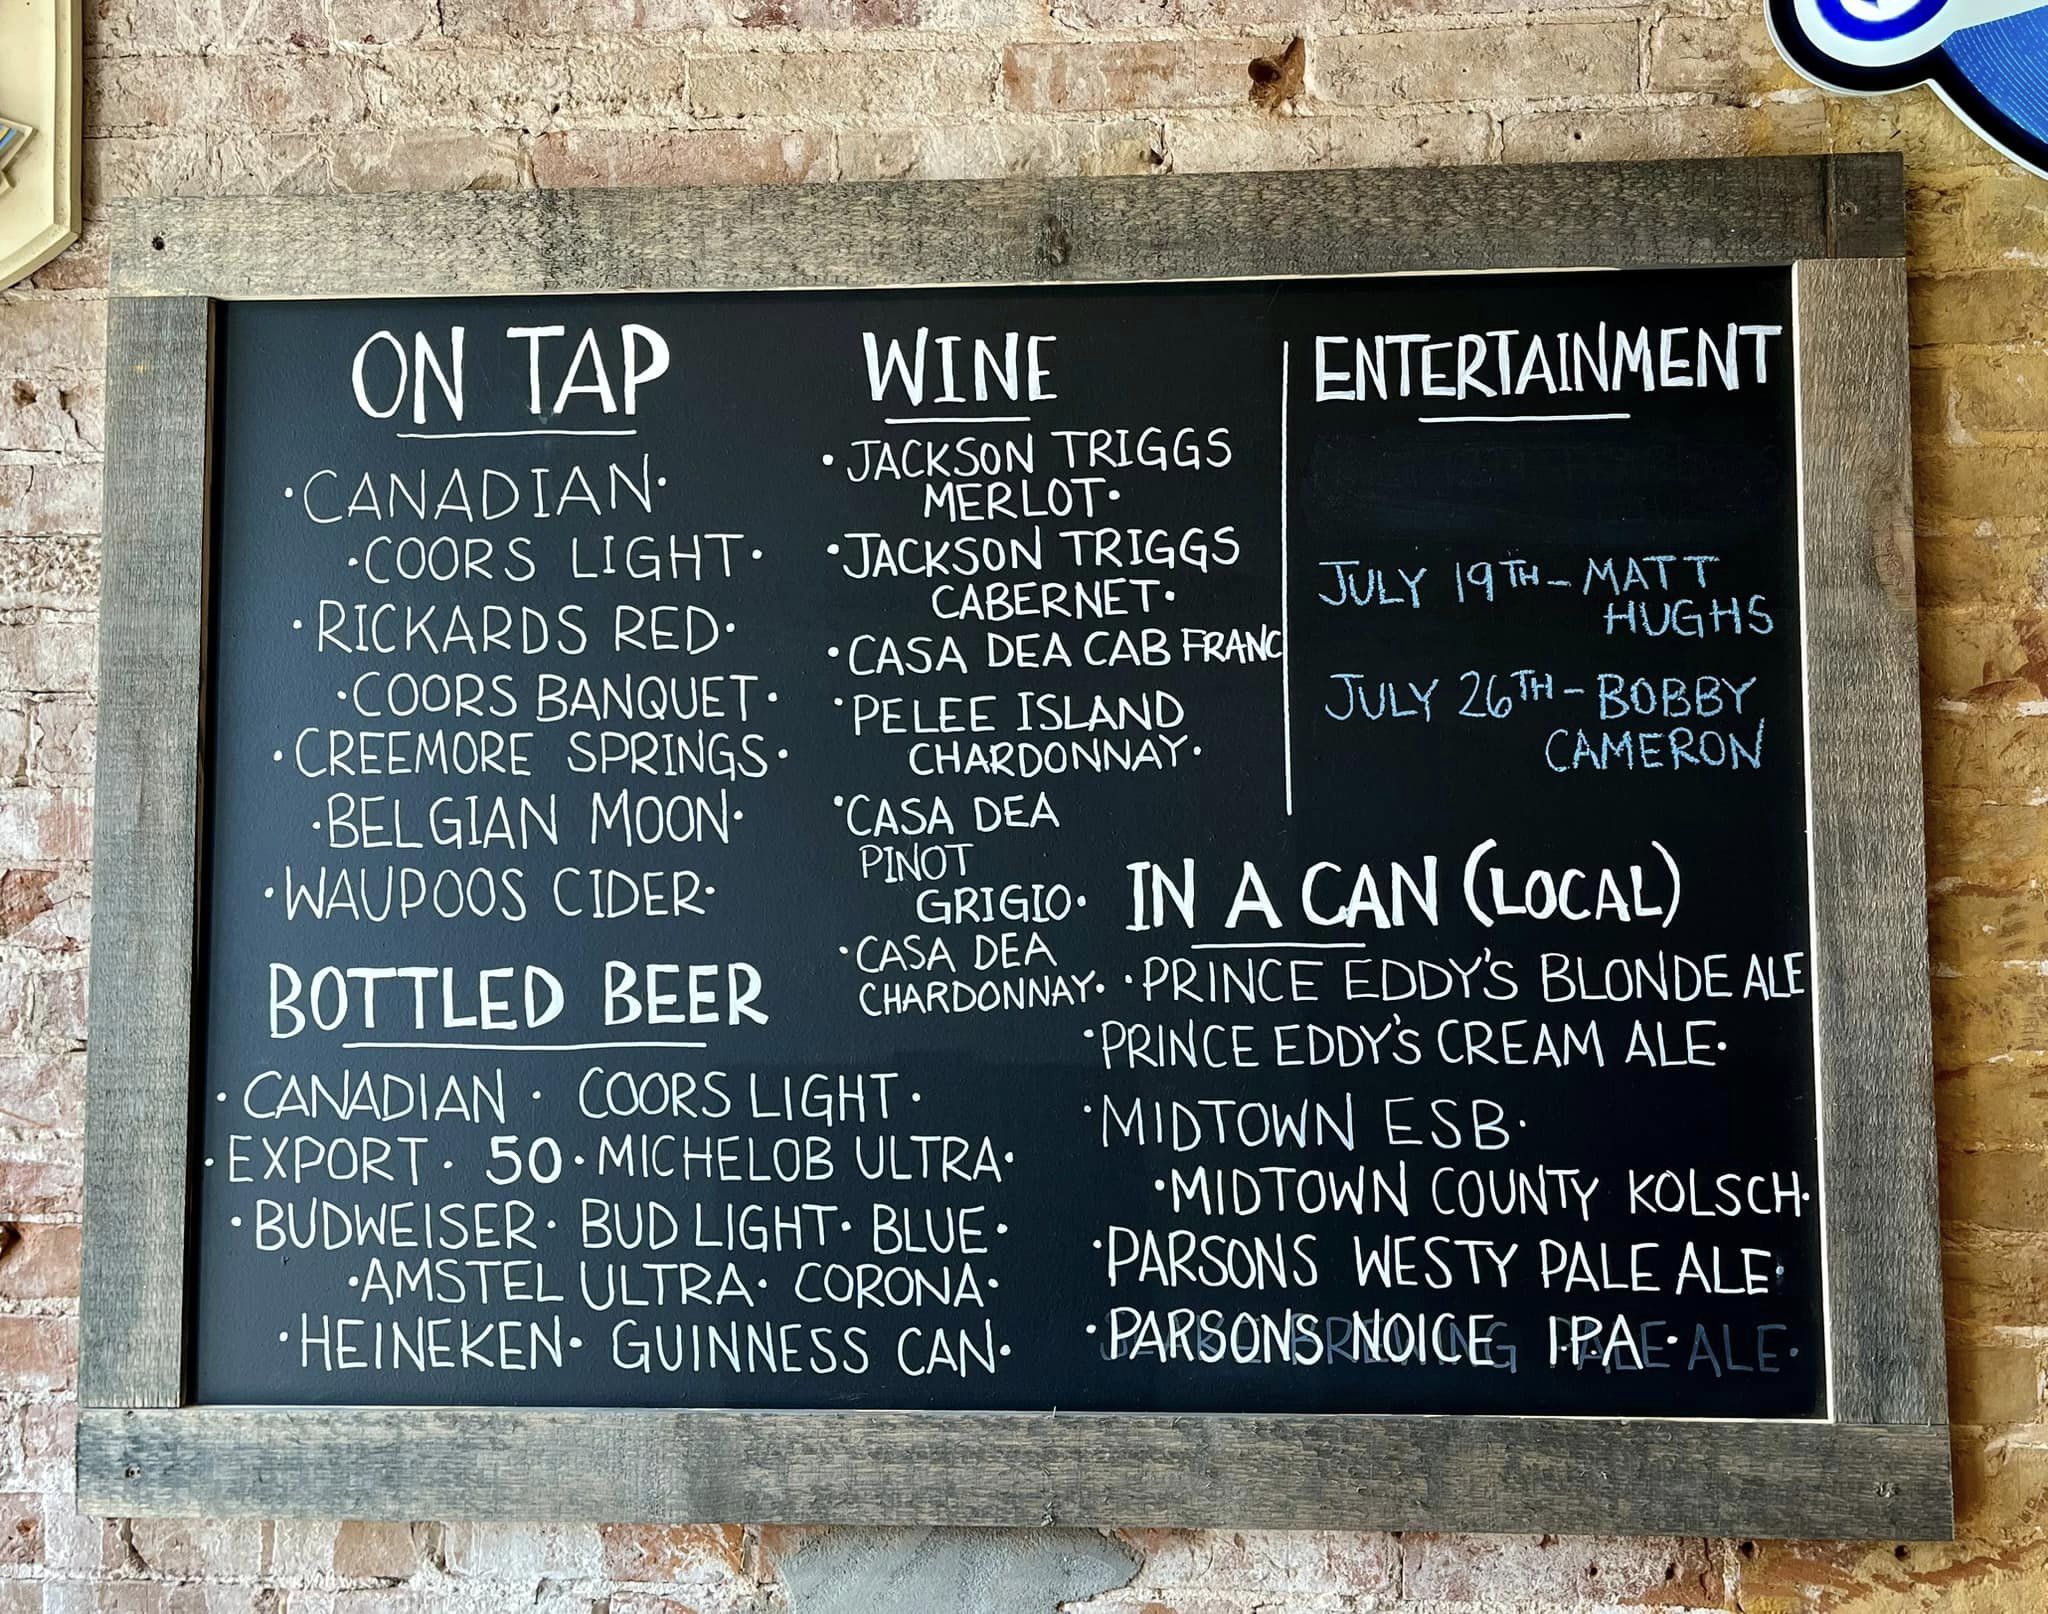 ON TAP
·CANADIAN·
·COORS LIGHT·
·RICKARDS RED·
·COORS BANQUET·
·CREEMORE SPRINGS·
·BELGIAN MOON·
·WAUPOOS CIDER·
BOTTLED BEER
·CANADIAN · COORS LIGHT·
·EXPORT · 50·MICHELOB ULTRA·
·BUDWEISER· BUD LIGHT· BLUE·
·AMSTEL ULTRA· CORONA·
·HEINEKEN· GUINNESS CAN·
WINE
·JACKSON TRIGGS
MERLOT·
·JACKSON TRIGGS
CABERNET·
·CASA DEA CAB FRANC
·PELEE ISLAND
CHARDONNAY·
·CASA DEA
PINOT
GRIGIO·
·CASA DEA
CHARDONNAY·
ENTERTAINMENT
JULY 19TH-MATT
HUGHS
JULY 26TH-BOBBY
CAMERON
IN A CAN (LOCAL)
·PRINCE EDDY'S BLONDE ALE
·PRINCE EDDY'S CREAM ALE·
·MIDTOWN ESB·
·MIDTOWN COUNTY KOLSCH·
·PARSONS WESTY PALE ALE·
·PARSONS NOICE IPA·
BREWING PALE ALE·